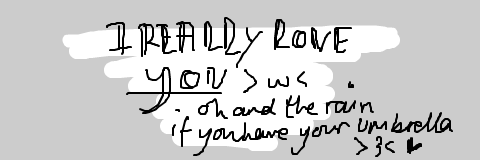 I REALLY LOVE
YOU >w<
. oh and the rain
if you have your umbrella
>3< ♥